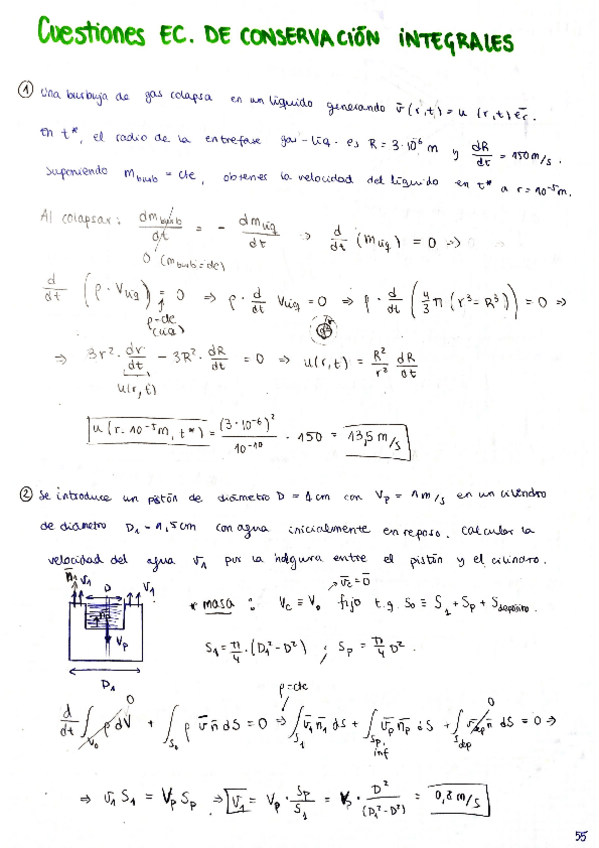 Cuestiones EC. DE CONSERVACIÓN INTEGRALES
① Una burbuja de gas colapsa en un líquido generando v̄(r,t) = u(r,t)ēr.
En t*, el radio de la entrefase gas-liq. es R = 3·10⁻⁶ m y dR/dt = 150 m/s.
Suponiendo m burb = cte, obtener la velocidad del líquido en t* a r = 10⁻⁵m.
Al colapsar: dm burb/dt = - dm liq/dt => d/dt (m liq) = 0 =>
0 (m burb = cte)
d/dt (ρ · V liq) = 0 => ρ · d/dt V liq = 0 => ρ · d/dt (4/3 π (r³ - R³)) = 0 =>
ρ = cte
(liq)
=> 3r² · dr/dt - 3R² · dR/dt = 0 => u(r,t) = R²/r² dR/dt
u(r,t)
u(r=10⁻⁵m, t*) = (3·10⁻⁶)²/10⁻¹⁰ · 150 = 13,5 m/s
② Se introduce un pistón de diámetro D = 1 cm con Vp = 1 m/s en un cilindro
de diámetro D₁ = 1,5 cm con agua inicialmente en reposo. Calcular la
velocidad del agua v₁ por la holgura entre el pistón y el cilindro.
n̄ v₁ D v₁
Vp
D₁
v̄c = 0̄
* masa: Vc ≡ V₀ fijo t.q. S₀ ≡ S₁ + Sp + S depósito.
S₁ = π/4 · (D₁² - D²) ; Sp = π/4 D².
ρ = cte
d/dt ∫V₀ ρ dV + ∫S₀ ρ v̄ n̄ dS = 0 => ∫S₁ v̄₁ n̄₁ dS + ∫Sp,inf v̄p n̄p dS + ∫Sdep v̄dep n̄ dS = 0 =>
=> v₁ S₁ = Vp Sp => v₁ = Vp · Sp/S₁ = Vp · D²/(D₁² - D²) = 0,8 m/s
55